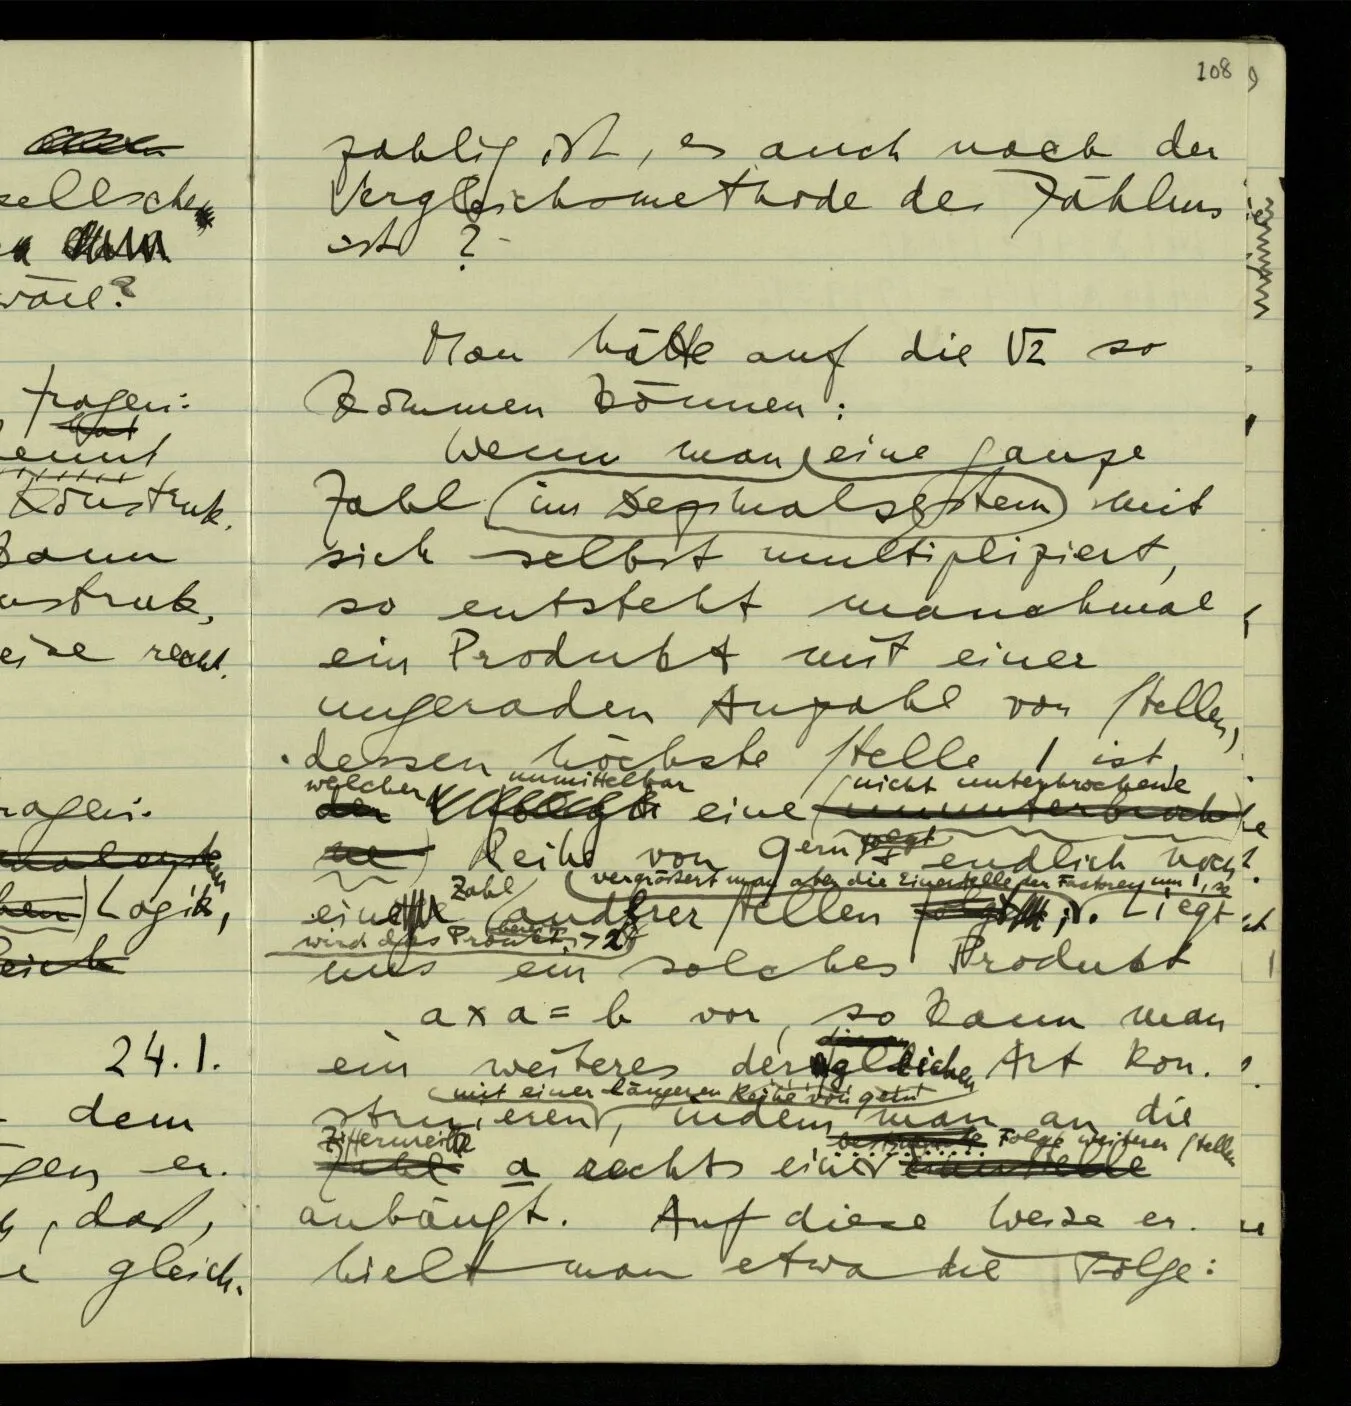 108
sellschen
wäre?
fragen:
ennt
Konstruk.
kann
nstruk,
eise recht.
ragen:
Logik,
eich
24.1.
dem
gen er.
, daß,
gleich.
zahlig ist, es auch nach der
Vergleichsmethode des Zählens
ist?
Man hätte auf die √2 so
kommen können:
Wenn man eine ganze
Zahl (im Dezimalsystem) mit
sich selbst multipliziert,
so entsteht manchmal
ein Produkt mit einer
ungeraden Anzahl von Stellen,
dessen höchste Stelle 1 ist,
welcher unmittelbar nicht unterbrochene
der eine ununterbroch
ne Reihe von 9ern folgt endlich noch
Zahl vergrößert man aber die Einerstelle der Factoren um 1, so
eine anderer Stellen folgt. Liegt
wird das Produkt > 2
uns ein solches Produkt
a × a = b vor, so kann man
ein weiteres dergleichen Art kon.
mit einer längeren Reihe von 9ern
struieren, indem man an die
Ziffernreihe bestimmte Folge weiterer Stellen
Zahl a rechts eine Einerstelle
anhängt. Auf diese Weise er.
hielt man etwa die Folge: